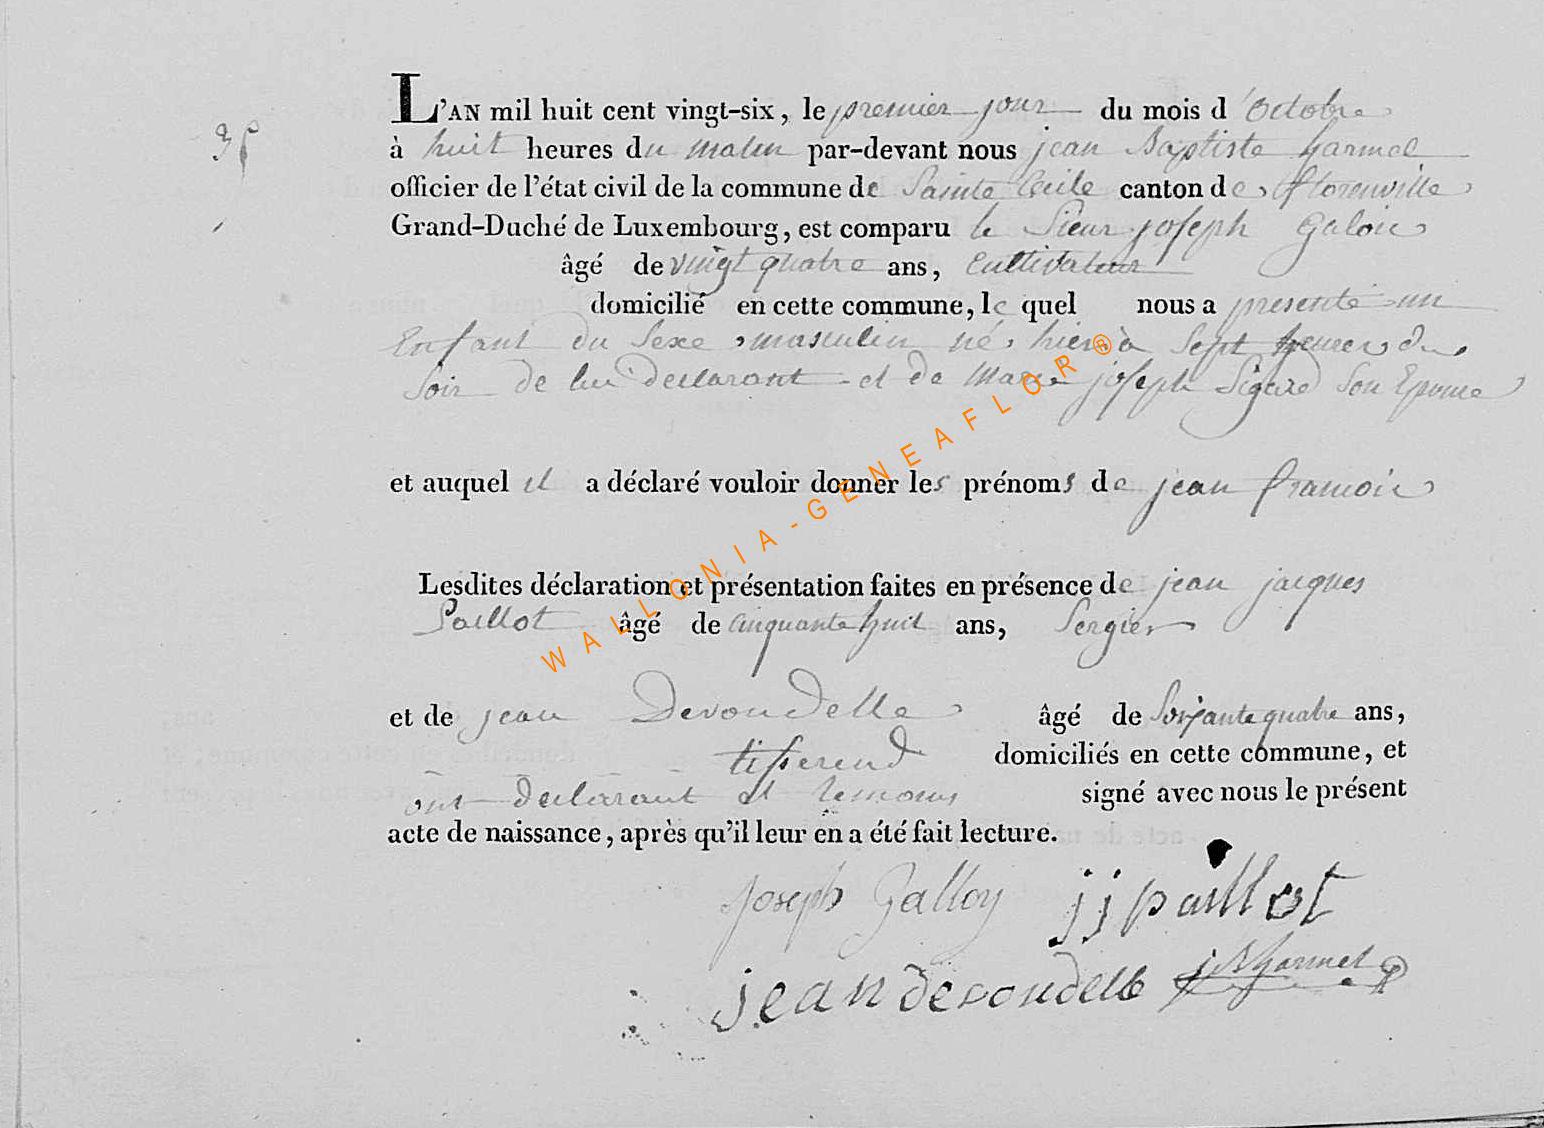 L'AN mil huit cent vingt-six, le premier jour du mois d'Octobre
35
à huit heures du matin par-devant nous jean Baptiste harmel
officier de l'état civil de la commune de Sainte Cecile canton de florenville
Grand-Duché de Luxembourg, est comparu le Sieur joseph Galoi
âgé de vingt quatre ans, Cultivateur
domicilié en cette commune, le quel nous a presenté un
Enfant du Sexe masculin né hier à Sept heures du
Soir de lui declarant et de Marie joseph Sigard Son Epouse
et auquel il a déclaré vouloir donner les prénoms de jean francois
Lesdites déclaration et présentation faites en présence de jean jacques
Paillot âgé de Cinquante huit ans, Sergier
et de jean Devoudelle âgé de Soixante quatre ans,
tisserend domiciliés en cette commune, et
ont declarant et temoins signé avec nous le présent
acte de naissance, après qu'il leur en a été fait lecture.
joseph Galloy jj paillot
jean devoudelle jBharmel
WALLONIA-GENEAFLOR®